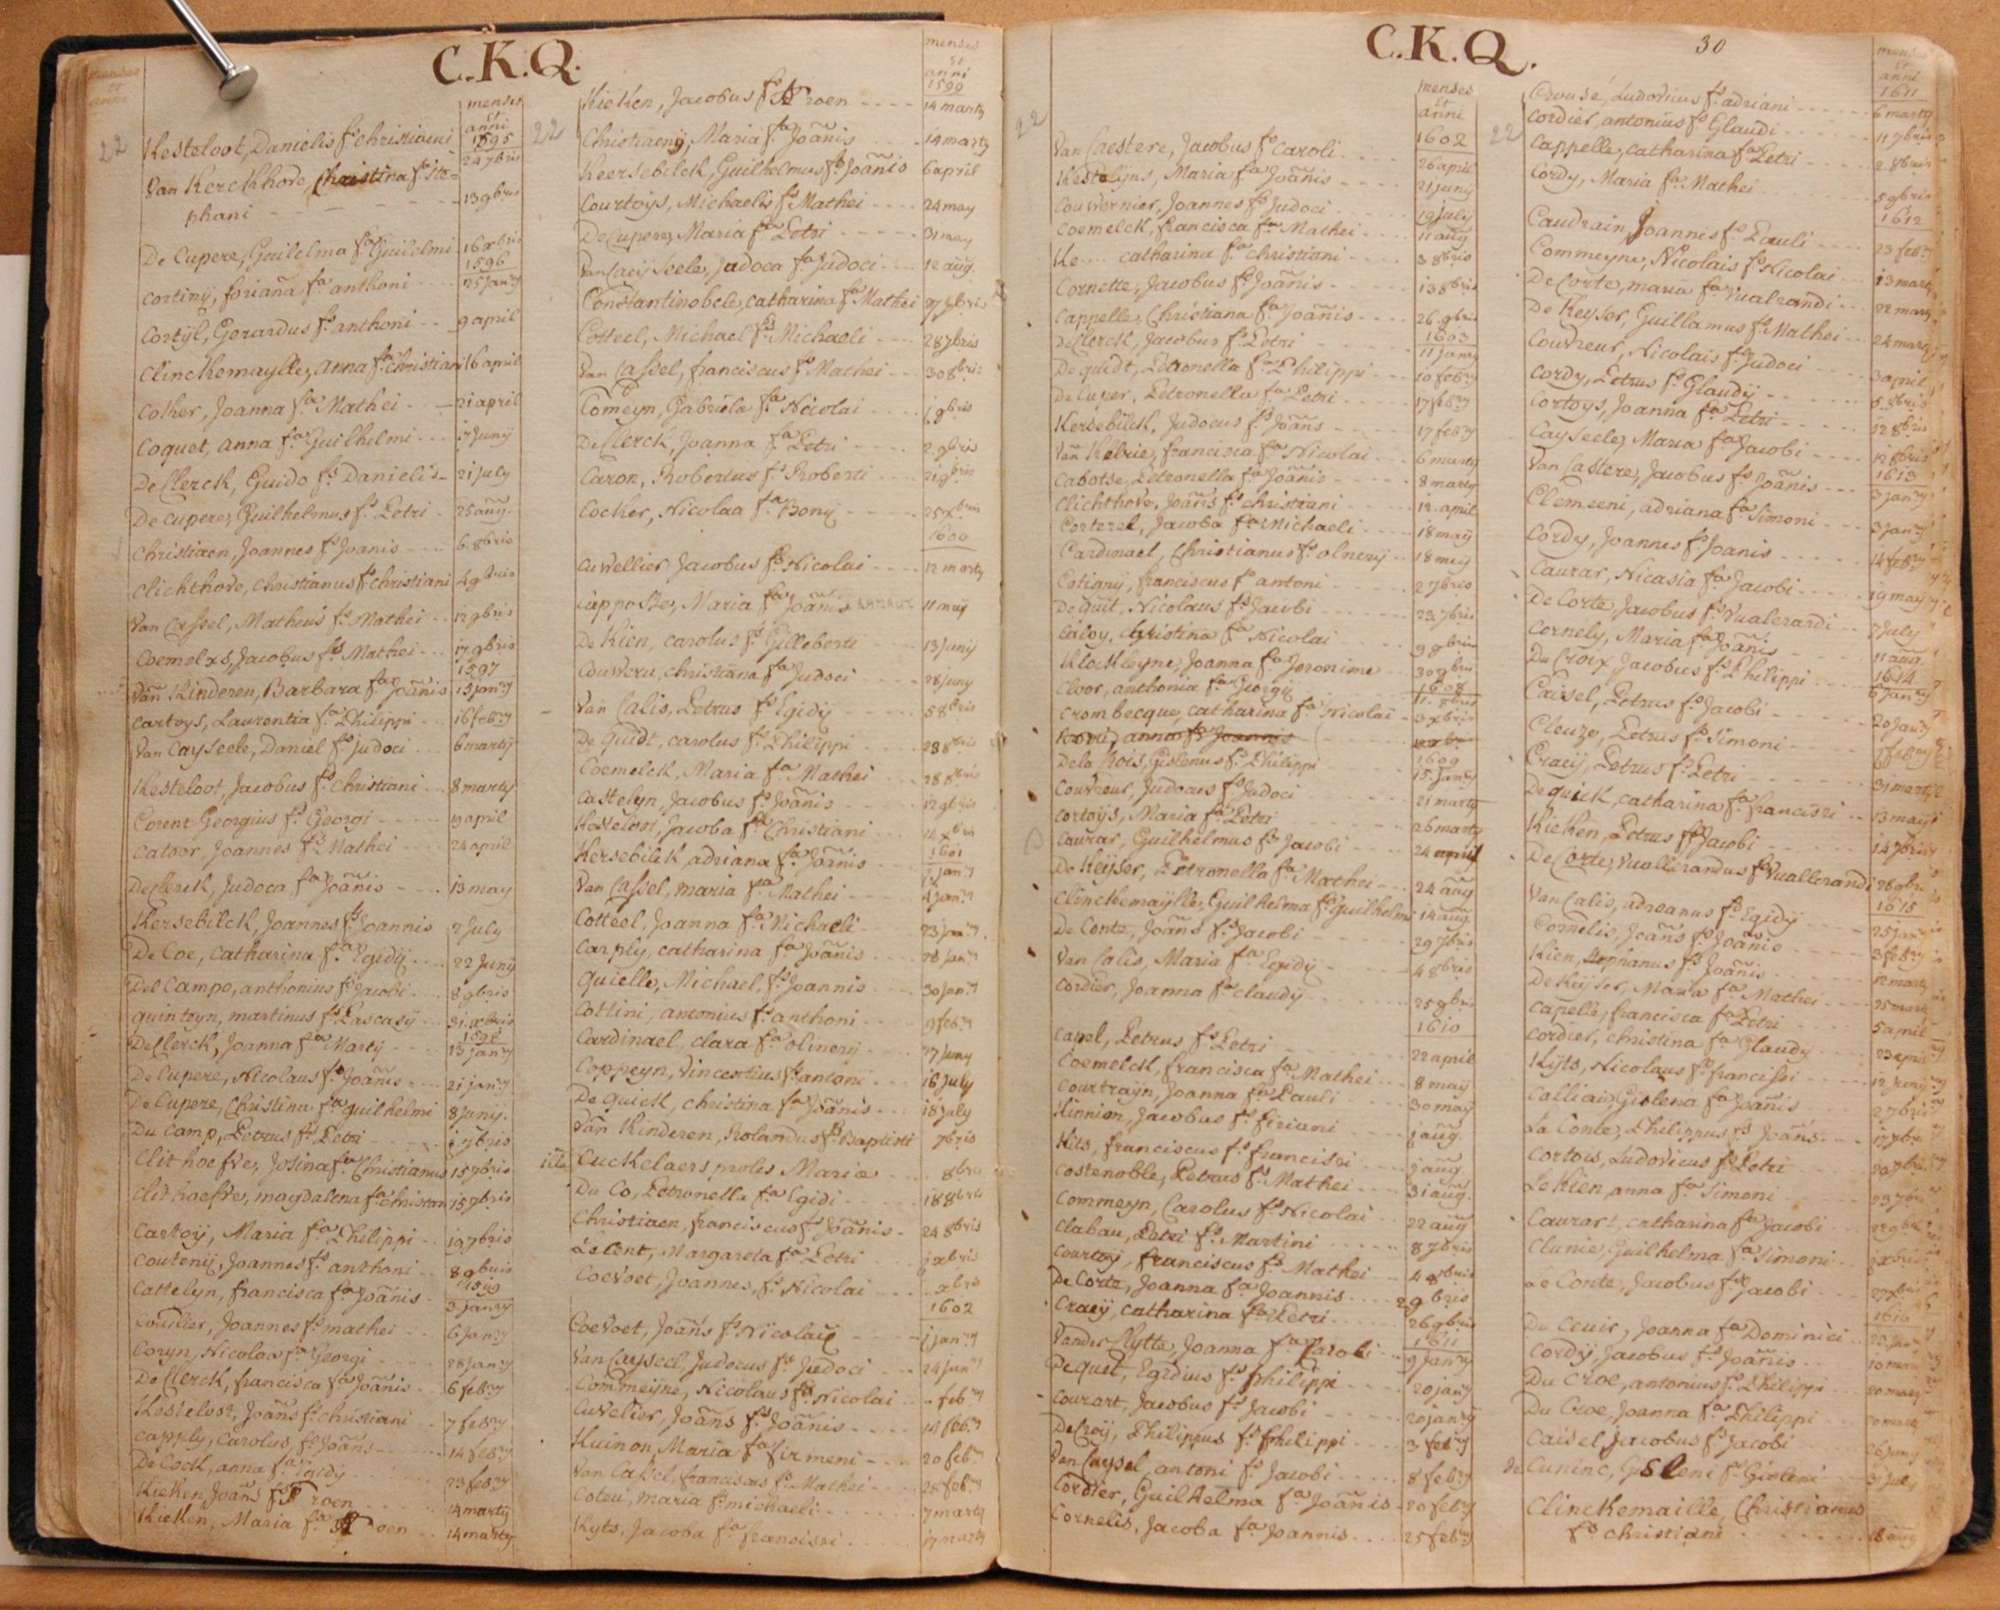 C.K.Q.
menses
et
anni
22
menses
et
anni
1595
Kesteloot, Danielis fs christiani 24 7bris
Van Kerckhove, Christina fa Ste=
phani 13 9bris
De Cupere, Guilelma fa Guilelmi 16 xbris
1596
Cortiny, foriana fa anthoni 25 janry
Cortyl, Gerardus fs anthoni 9 april
Clinckemaylle, anna fa christian 16 april
Colher, Joanna fa Mathei 21 april
Coquet, anna fa Guilhelmi 17 Juny
De Clerck, Guido fs Danielis 21 july
De Cupere, Guilhelmus fs Petri 25 aug
Christiaen, Joannes fs Joanis 6 8bris
Clichthove, Christianus fs christiani 4 9bris
Van Cassel, Matheus fs Mathei 12 9bris
Coemelxs, Jacobus fs Mathei 17 9bris
1597
Van Kinderen, Barbara fa Joañis 15 janry
Cartoys, Laurentia fa Philippi 16 febry
Van Cayseele, Daniel fs judoci 6 marty
Kesteloot, Jacobus fs christiani 8 marty
Corent Georgius fs Georgi 19 april
Catoor, Joannes fs Mathei 24 april
De Clerck, Judoca fa Joañis 13 may
Kersebilck, Joannes fs Joannis 2 July
De Coe, Catharina fa Egidij 22 Juny
Del Campo, anthonius fs Jacobi 8 9bris
quintyn, martinus fs Pascasij 31 xbris
1598
De Clerck, Joanna fa Marty 13 janry
De Cupere, Nicolaus fs Joañis 21 janry
De Cupere, Christina fa guilhelmi 8 Juny
Du Camp, Petrus fs Petri 17 7bris
Clithoefve, Josina fa Christianus 15 7bris
Clithoefve, magdalena fa christan 15 9bris
Cartoy, Maria fa Philippi 19 7bris
Coutenij, Joannes fs anthoni 8 9bris
1599
Cattelyn, francisca fa Joañis 3 janry
Couvlier, Joannes fs mathei 6 janry
Coryn, Nicolaa fa Georgi 28 janry
De Clerck, francisca fa Joañis 6 febry
Kesteloot, Joañs fs christiani 7 febry
Capply, Carolus, fs Joañs 14 febry
De Cock, anna fa Egidij 23 febry
Kieken Joañs fs Troen 14 marty
Kieken, Maria fa Troen 14 marty
22
menses
et
anni
1599
Kieken, Jacobus fs Troen 14 marty
Christiaeny, Maria fa Joañis 14 marty
Keersebilck, Guilhelmus fs Joañis 6 april
Courtoys, Michaelis fs Mathei 24 may
De Cupere, Maria fa Petri 31 may
Van Caeyseele, Judoca fa Judoci 12 aug.
Constantinobele, catharina fa Mathei 27 7bris
Cotteel, Michael fs Michaeli 28 7bris
Van Cassel, franciscus fs Mathei 30 8bris
Comeyn, Gabriela fa Nicolai 1 9bris
De Clerck, Joanna fa Petri 2 9bris
Caron, Robertus fs Roberti 21 9bris
Cocker, Nicolaa fa Bony 25 xbris
1600
Cuvellier Jacobus fs Nicolai 12 marty
capposte, Maria fa Joañis 11 may
De Kien, Carolus fs Gilleberti 13 juny
Couvreu, christiana fa Judoci 28 juny
Van Calis, Petrus fs Egidij 5 8bris
De Quidt, Carolus fs Philippi 23 8bris
Coemelck, Maria fa Mathei 28 8bris
Castelyn, Jacobus fs Joañis 12 9bris
Kesteloot, Jacoba fa Christiani 14 xbris
1601
Kersebilck adriana fa Joañis 1 janry
Van Cassel, maria fa Mathei 4 janry
Cotteel, Joanna fa Michaeli 23 janry
Carply, catharina fa Joañis 28 janry
Quielle, Michael, fs Joannis 30 janry
Cottini, antonius fs anthoni 9 febry
Cardinael, clara fa olinery 27 juny
Coppeyn, Vincentius fs antoni 16 July
De Quick, christina fa Joañis 18 july
Van Kinderen, Rolandus fs Baptisti 7bris
Cuckelaers proles Maria 8bris
Du Co, Petronella fa Egidi 18 8bris
Christiaen, franciscus fs Joañis 24 8bris
Le Cent, Margareta fa Petri 1 xbris
Coevoet, Joannes, fs Nicolai xbris
1602
Coevoet, Joañs fs Nicolay 1 janry
Van Caysel, Judocus fs Judoci 24 janry
Commeyne, Nicolaus fs Nicolai febry
Cuvelier, Joañs fs Joañis 14 febry
Kuinon, Maria fa firmeni 20 febry
Van Cassel, franciscus fs Mathei 28 febry
Coteu, maria fa michaeli 7 marty
Kyts, Jacoba fa francisci 17 marty
C.K.Q.
30
22
menses
et
anni
1602
Van Caestere, Jacobus fs caroli 26 april
Kestelyns, Maria fa Joañis 21 juny
Couvernier, Joannes fs Judoci 19 july
Coemelck, francisca fa Mathei 11 aug
Ke.... catharina fa christiani 3 8bris
Cornette, Jacobus fs Joañis 13 8bris
Cappelle, Christiana fa Joañis 26 9bris
1603
De Clerck, Jacobus fs Petri 11 janry
De quidt, Petronella fa Philippi 10 febry
De Cuper, Petronella fa Petri 17 febry
Kersebilck, Judocus fs Joañs 17 febry
Van Kebrie, francisca fa Nicolai 6 marty
Cabotse, Petronella fa Joañis 8 marty
Clichthove, Joañs fs christiani 12 april
Corterel, Jacoba fa Michaeli 18 may
Cardinael, Christianus fs olnery 18 may
Cotiany, franciscus fs antoni 2 7bris
De Quit, Nicolaus fs Jacobi 23 7bris
Caloy, Christina fa Nicolai 9 8bris
Klockleyne, Joanna fa Jeronime 30 9bris
1608
Cloor, anthonia fa Georgij 11 8bris
Crombecque, catharina fa Nicolai 3 xbris
1609
De la Bois, Gislenus fs Philippi 15 janry
Couvreur, Judocus fs Judoci 21 marty
Cortoys, Maria fa Petri 26 marty
Caurar, Guilhelmus fs Jacobi 24 april
De Keyser, Petronella fa Mathei 24 aug
Clinckemaylle, Guilhelma fa Guilhelmi 14 aug
De Conte, Joañs fs Jacobi 29 7bris
Van Calis, Maria fa Egidij 4 8bris
Cordier, Joanna fa Claudij 25 9bris
1610
Capel, Petrus fs Petri 22 april
Coemelck, francisca fa Mathei 8 may
Courtrayn, Joanna fa Pauli 30 may
Kinnion, Jacobus fs firiani 1 aug
Kits, franciscus fs francisci 1 aug
Costenoble, Petrus fs Mathei 31 aug
Commeyn, Carolus fs Nicolai 22 aug
Clabau, Petri fs Martini 8 7bris
Courtoy, franciscus fs Mathei 4 8bris
De Corte, Joanna fa Joannis 2 9bris
Craey, catharina fa Petri 26 9bris
1611
Vander Clytte, Joanna fa Caroli 9 janry
De quit, Egidius fs philippi 20 janry
Courart, Jacobus fs Jacobi 20 janry
De Croij, Philippus fs philippi 3 febry
Van Caysel, antoni fs Jacobi 8 febry
Cordier, Guilhelma fa Joañis 20 febry
Cornelis, Jacoba fa Joannis 25 febry
22
menses
et
anni
1611
Crousé, Ludovius fs adriani 6 marty
Cordier, antonius fs Glaudi 11 7bris
Cappelle, catharina fa Petri 2 8bris
Cordy, Maria fa Mathei 5 9bris
1612
Caudrain, Joannis fs Pauli 23 febry
Commeyne, Nicolais fs Nicolai 13 marty
De Corte, maria fa Vualerandi 22 marty
De Keyser, Guillamus fs Mathei 24 marty
Couvreur, Nicolais fs Judoci 3 april
Cordy, Petrus fs Glaudij 8bris
Cortoys, Joanna fa Petri 12 8bris
Cayseele, Maria fa Jacobi 12 8bris
1613
Van Castere, Jacobus fs Joañis 3 janry
Clemeeni, adriana fa Simoni 3 janry
Cordy, Joannes fs Joanis 14 febry
Caurar, Nicasia fa Jacobi 19 may
De Corte, Jacobus fs Vualerandi 7 july
Cornely, Maria fa Joañis 11 aug
1614
Du Croix Jacobus fs Philippi 6 janry
Caisel, Petrus fs Jacobi 20 janry
Cleuze, Petrus fs Simoni febry
Craeij, Petrus fs Petri 31 marty
De quick, catharina fa francisci 13 may
Kieken, Petrus fs Jacobi 14 7bris
De Corte, Vuallerandus fs Vuallerandi 28 9bris
1615
Van Calis, adreanus fs Egidij 25 janry
Cornelis, Joañs fs Joañis 3 febry
Kien, Stephanus fs Joañis 12 marty
De Keyser, Maria fa Mathei 25 marty
Capelle, francisca fa Petri 5 april
Cordier, christina fa Glaudy 23 april
Kyts, Nicolaus fs francisci 12 juny
Colliai, Gislena fa Joañis 2 7bris
La Conte, Philippus fs Joañs 17 7bris
Cortois, Ludovicus fs Petri 20 7bris
Le Kien, anna fa Simoni 23 7bris
Caurart, catharina fa Jacobi 22 9bris
Clunie, Guilhelma fa Simoni 1 xbris
Le Conte, Jacobus fs Jacobi 27 xbris
1616
Du Ceuir, Joanna fa Dominici 20 jan
Cordij, Jacobus fs Joañis 10 mart
Du Croe, antonius fs Philippi 20 mart
Du Croe, Joanna fa Philippi 20 mart
Caisel Jacobus fs Jacobi 26 juny
De Cuninc, Gisleni fs Gisleni 31 july
Clinckemaille, Christianus
fs christiani 18 aug